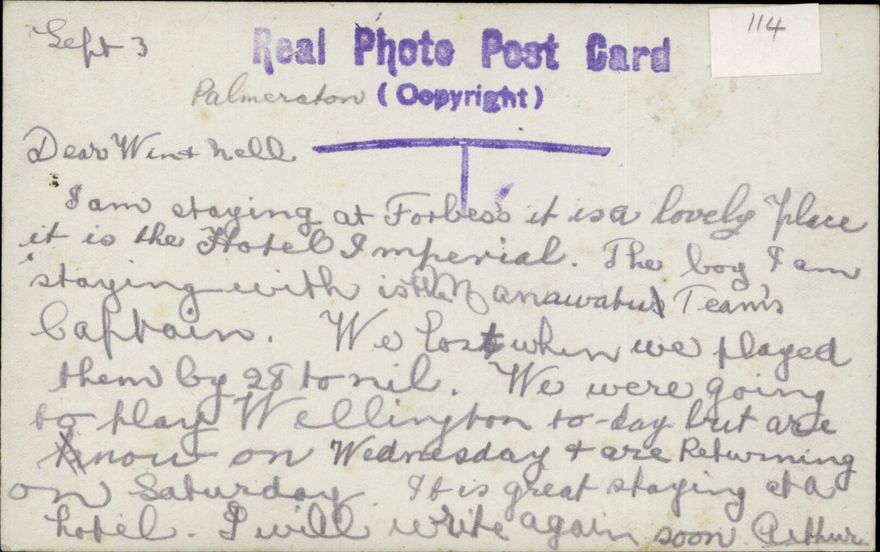 Sept 3
114
Real Photo Post Card
(Copyright)
Palmerston
Dear Win & Nell
I am staying at Forbes's it is a lovely place
it is the Hotel Imperial. The boy I am
staying with is the Manawatu Team's
Captain. We lost when we played
them by 28 to nil. We were going
to play Wellington to-day but are
know on Wednesday & are Returning
on Saturday. It is great staying at a
hotel. I will write again soon Arthur